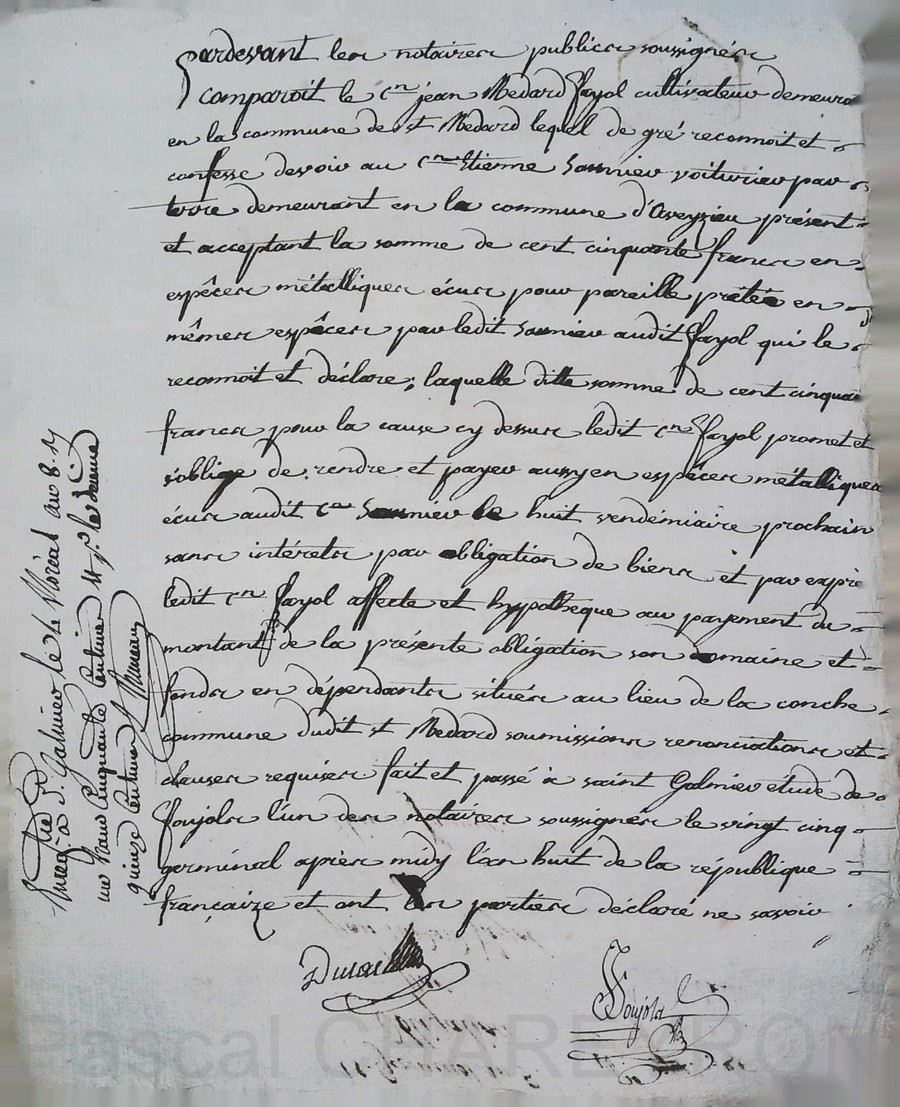 pardevant les notaires publics soussignés
comparoit le cn jean Medard fayol cultivateur demeura
en la commune de st Medard lequel de gré reconnoit et
confesse devoir au cn Etienne Saunier voiturier par
terre demeurant en la commune d'aveyzieu présent
et acceptant la somme de cent cinquante francs en
espêces métalliques écus pour pareille prétée en
mêmes espêces par ledit saunier audit fayol qui le
reconnoit et déclare; laquelle ditte somme de cent cinquan
francs pour la cause cy dessus ledit cn fayol promet et
s'oblige de rendre et payer aussy en espêces métalliques
écus audit cn Saunier le huit vendémiaire prochain
sans intérets par obligation de biens et par exprès
ledit cn fayol affecte et hypothèque au payement du
montant de la présente obligation son domaine et
fonds en dépendants situés au lieu de la conche
commune dudit st Medard soumissions renonciations et
clauses requises fait et passé à saint Galmier etude de
Joujols l'un des notaires soussignés le vingt cinq
germinal après midy l'an huit de la république
françaize et ont les parties déclaré ne savoir
Joujols
Enregtré à St Galmier le 4 floréal an 8
un franc cinquante centimes
quinze centimes
Pascal CHARETRON